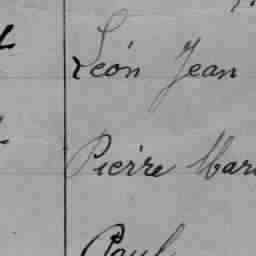 Léon Jean
Pierre Mari
Paul